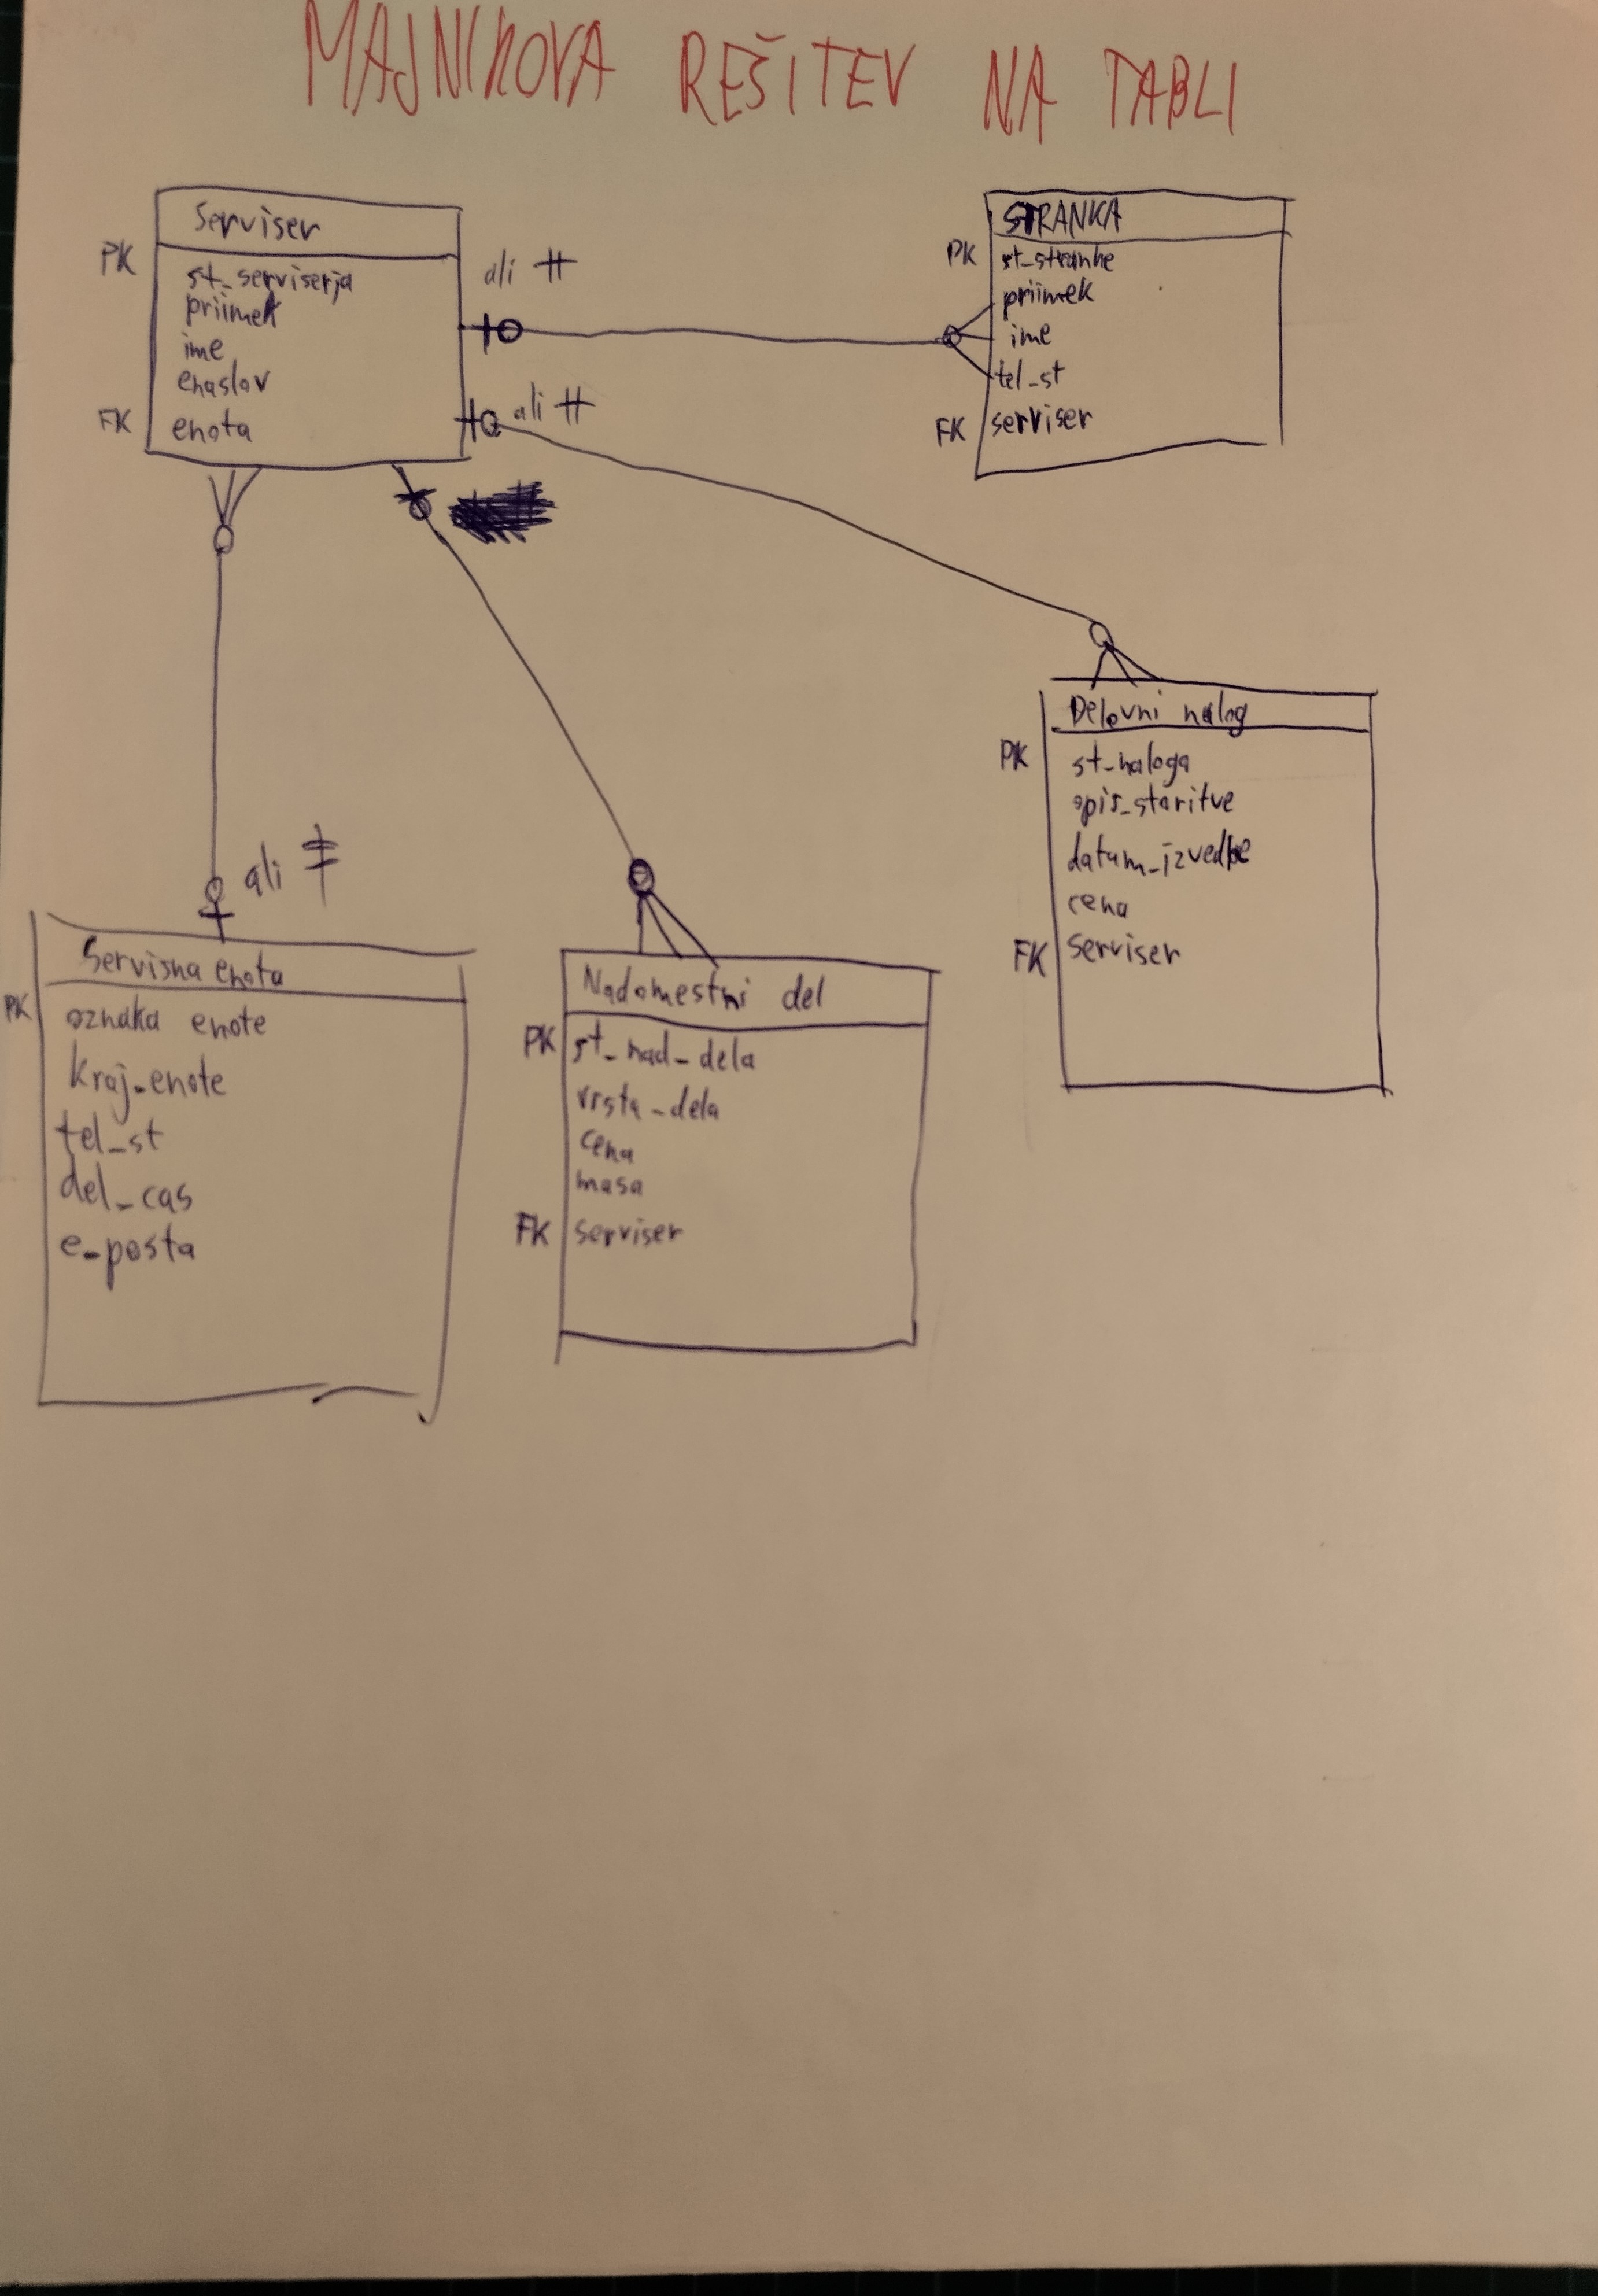 MAJNIKOVA REŠITEV NA TABLI
Serviser
PK
st_serviserja
priimek
ime
enaslov
FK
enota
ali
ali
STRANKA
PK
st_stranke
priimek
ime
tel_st
FK
serviser
Delovni nalog
PK
st_naloga
opis_storitve
datum_izvedbe
cena
FK
serviser
ali
Servisna enota
PK
oznaka enote
kraj_enote
tel_st
del_cas
e_posta
Nadomestni del
PK
st_nad_dela
vrsta_dela
cena
masa
FK
serviser